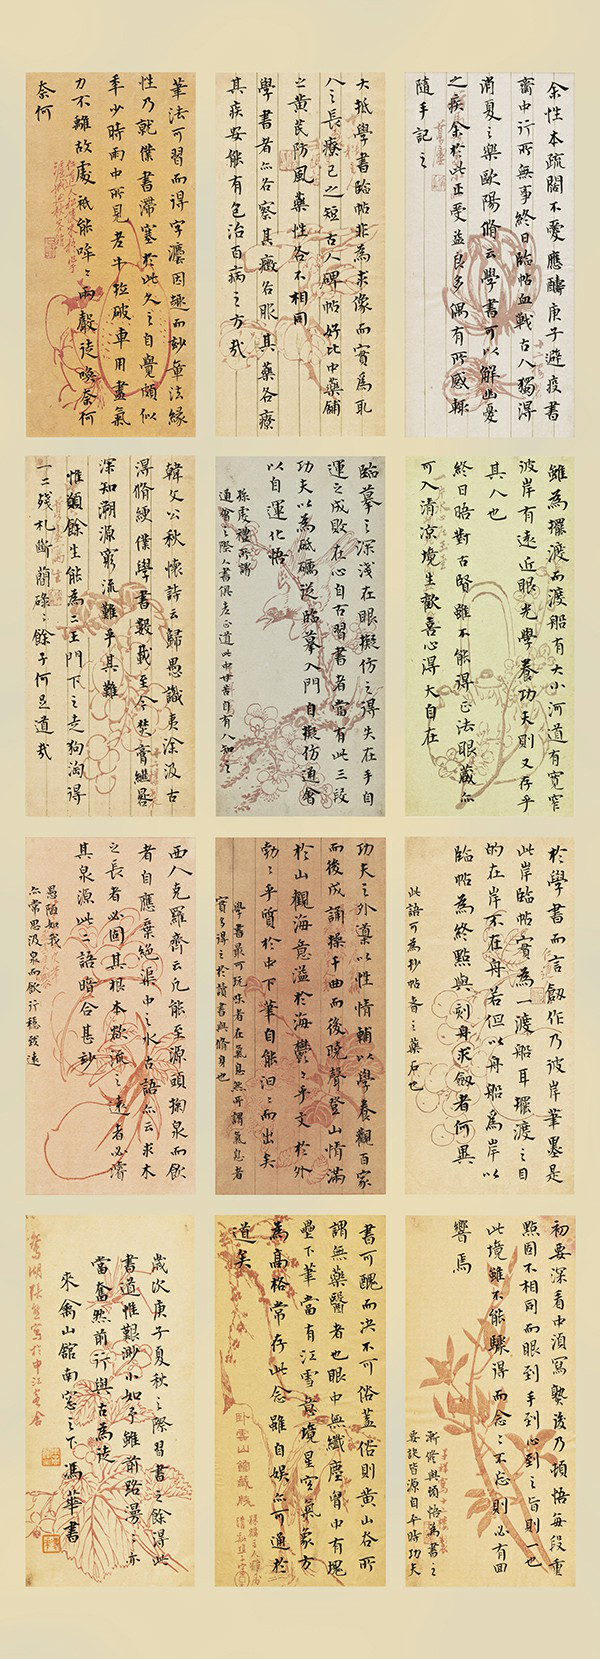 余性本疏闊不愛應醻庚子避疫書
齋中行所無事終日臨帖血戰古人獨得
消夏之樂歐陽脩云學書可以解幽憂
之疾余於此正受益良多偶有所感輒
隨手記之
大抵學書臨帖非為求像而實為取
人之長療己之短古人碑帖好比中藥鋪
之黃芪防風藥性各不相同
學書者亦各察其癥各服其藥各療
其疾安能有包治百病之方哉
筆法可習而得字灋因趣而妙章法緣
性乃就僕書滯塞於此久之自覺頗似
年少時雨中所見老牛拉破車用盡氣
力不離故處祇能哞々兩聲徒喚奈何
奈何
雖為擺渡而渡船有大小河道有寬窄
彼岸有遠近眼光學養功夫則又存乎
其人也
終日晤對古賢雖不能得正法眼藏亦
可入清凉境生歡喜心得大自在
臨摹之深淺在眼擬仿之得失在手自
運之成敗在心自古習書者當有此三段
功夫以為砥礪從臨摹入門自擬仿通會
以自運化悟
孫虔禮所謂
通會之際人書俱老正道此中甘苦自有人知之
韓文公秋懷詩云歸愚識夷塗汲古
得脩綆僕學書數載至今焚膏繼晷
深知溯源窮流難乎其難
惟願餘生能為二王門下之走狗淘得
一二殘札斷簡碌々餘子何足道哉
於學書而言劔作乃彼岸筆墨是
此岸臨帖實為一渡船耳擺渡之目
的在岸不在舟若但以舟船為岸以
臨帖為終點與刻舟求劔者何異
此語可為抄帖者之藥石也
功夫之外藴以性情輔以學養觀百家
而後成誦操千曲而後曉聲登山情滿
於山觀海意溢於海鬱々乎文於外
勃々乎質於中下筆自能汩々而出矣
學書最可玩味者在氣息然所謂氣息者
實多得之於讀書與脩身也
西人克羅齊云凡能至源頭掬泉而飲
者自應棄絕渠中之水古語亦云求木
之長者必固其根本欲流之遠者必濬
其泉源此二語暗合甚妙
愚陋如我
亦常思汲泉而飲行穩致遠
初要深看中須寫熟後乃頓悟每段重
點固不相同而眼到手到心到之旨則一也
此境雖不能驟得而念念不忘則必有回
響焉
漸脩與頓悟為書之
要訣皆源自平時功夫
書可醜而決不可俗蓋俗則黃山谷所
謂無藥醫者也眼中無纖塵胷中有塊
壘下筆當有江雪意境星空氣象方
為高格常存此念雖自娛亦可通於
道矣
臥雲山館藏版
歲次庚子夏秋之際習書之餘得此
書道惟艱渺小如予雖前路漫々亦
當奮然前行與古為徒
來禽山館南窓之下馮華書